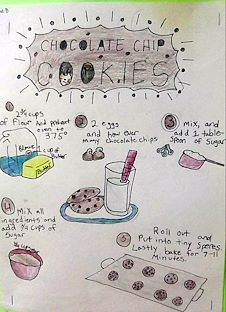 CHOCOLATE CHIP
COOKIES
2 ¾ cups
of flour And preheat
oven to
375°
1 cup
of butter
Butter
2
2 eggs
and how ever
many chocolate chips
3
mix, and
add 1 table-
spoon of sugar
4
Mix all
ingredients and
add ¾ cups of
sugar
Roll out and
Put into tiny Speres.
Lastly bake for 7-11
Minutes.